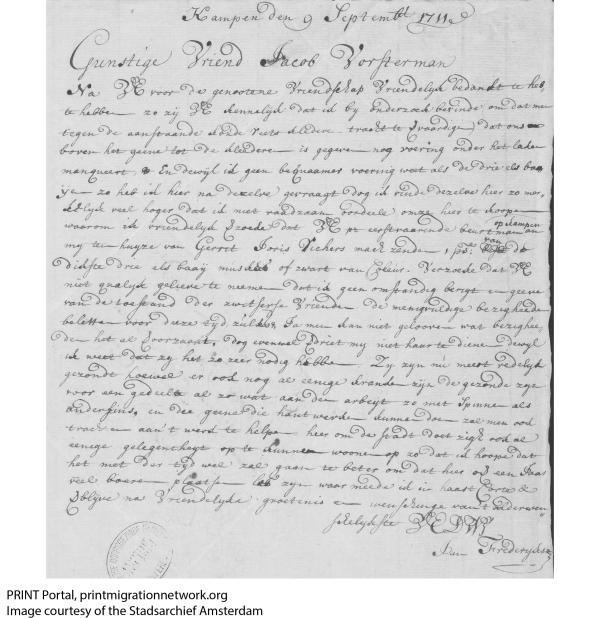 Kampen den 9 Septembr 1711
Gunstige Vriend Jacob Vorsterman
Na voor de genootene Vriendschap Vriendelyk bedankt te heb
te hebben zo zy kennelyk dat ik by onderzoek bevinde om dat men
tegen de aanstaande kleedere tracht te dat ons
boven het geene tot de kleedere is gegeven nog voering onder het laken
manqueert En dewyl ik geen bequamer voering weet als de drie els baa
ye zo heb ik hier na dezelve gevraagt dog ik vinde dezelve hier zo mer,
kelyk veel hoger dat ik niet raadzaam oordeele omze hier te koopen
op kampen
waarom ik vriendelyk verzoeke dat pr eerstvaarende beurtman aan
van
my ten huyze van Gerrit Joris Vichers zende 1 ps de
dickste drie els baaÿ of zwart van Coleur. Verzoeke dat
niet qualyk gelieve te neemen dat ik geen omstandig berigt en geeve
van de toestand der zwitserse Vrienden de menigvuldige bezigheeden
beletten voor deeze tyd zulks: Ja men kan niet gelooven wat bezighee,
den het al veroorzaakt. dog evenwel my niet haar te diene dewyl
ik weet dat zy het zo zeer nodig hebben Zy zyn nu meest redelyk
gezondt hoewel er ook nog al eenige kranke zyn de gezonde zyn
voor een gedeelte al zo wat aan den arbeyt zo met Spinnen als
andersins, en die geene die hant werken kunnen doen zal men ook
trachten aan 't werk te helpen hier om de stadt doet zigh ook al
eenige gelegentheyt op te kunnen woonen op zo dat ik hoope dat
het met der tyd wel zal gaan te beter om dat hier op een Jaar
veel boere plaatse zyn waar meede ik in haast &
blyve na Vriendelyke groetenis en wenschinge van 't

Frederiks
PRINT Portal, printmigrationnetwork.org
Image courtesy of the Stadsarchief Amsterdam